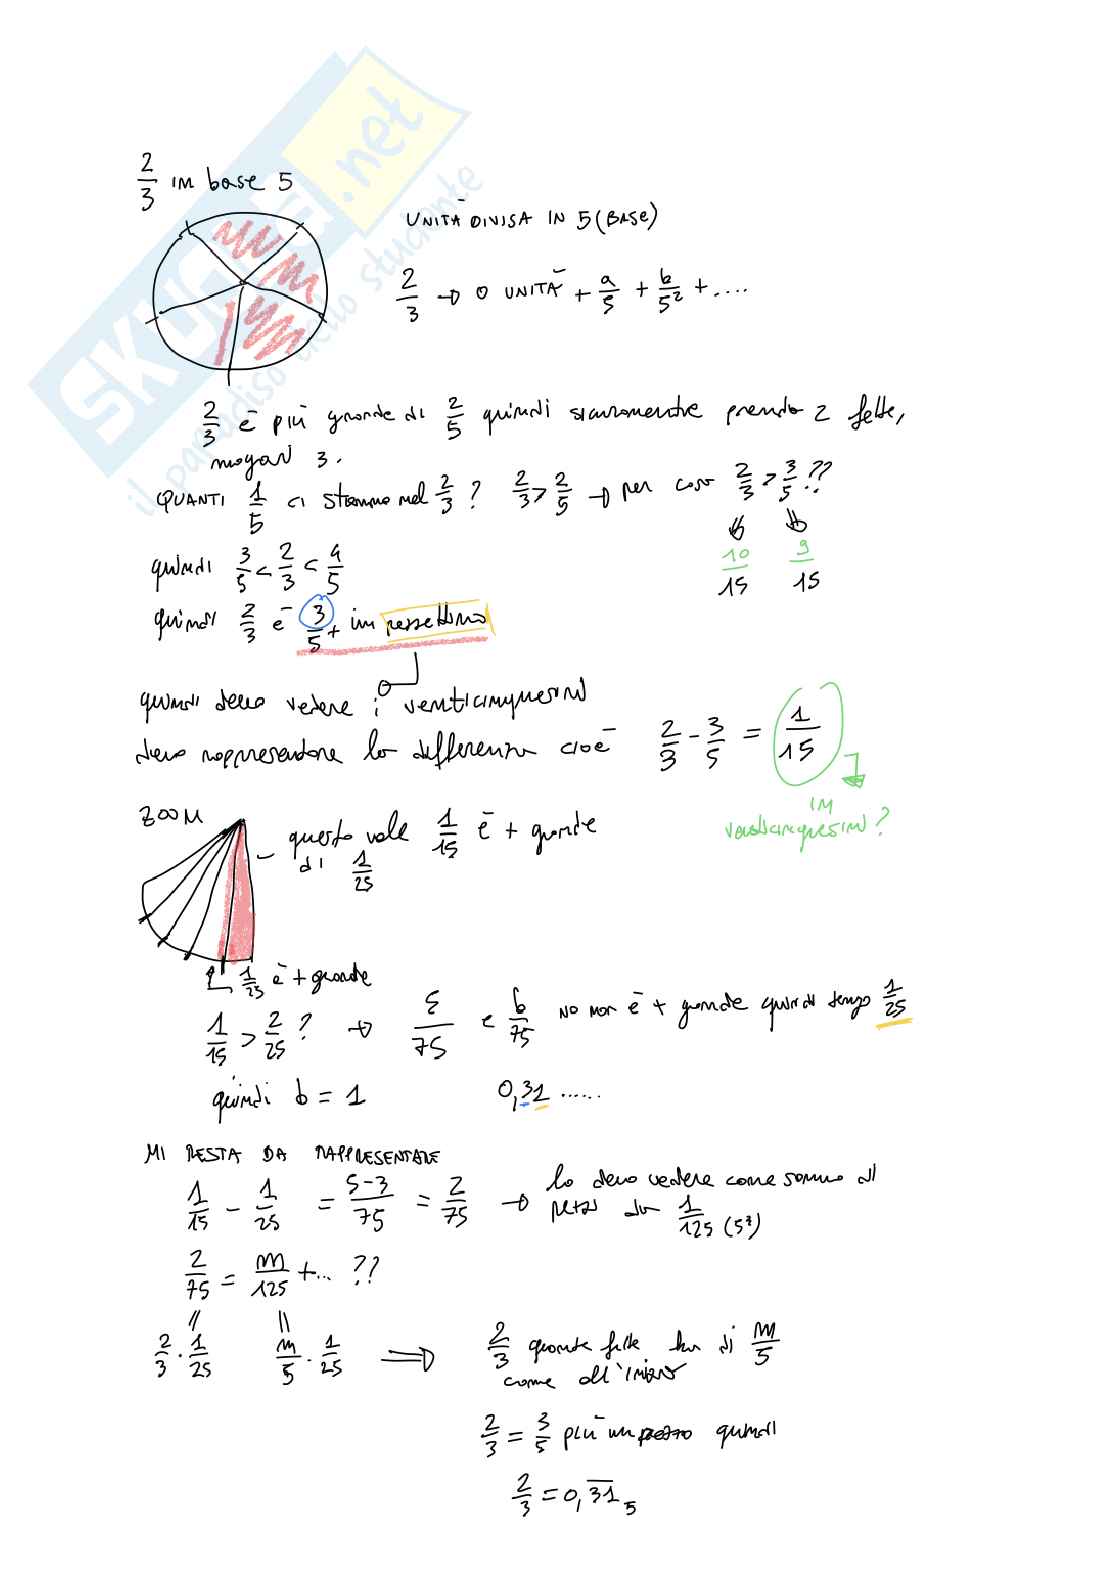 SKUOLA.net
il paradiso dello studente
2/3 in base 5
UNITÀ DIVISA IN 5 (BASE)
2/3 → 0 UNITÀ + a/5 + b/5² + ....
2/3 è più grande di 2/5 quindi sicuramente prendo 2 fette,
magari 3.
QUANTI 1/5 ci stanno nel 2/3 ? 2/3 > 2/5 → per caso 2/3 > 3/5 ??
10/15 9/15
quindi 3/5 < 2/3 < 4/5
quindi 2/3 è 3/5 + un pezzettino
quindi devo vedere i venticinquesimi
devo rappresentare la differenza cioè 2/3 - 3/5 = 1/15
in
venticinquesimi ?
ZOOM
questo vale 1/15 è + grande
di 1/25
1/25 è + grande
1/15 > 2/25 ? → 5/75 e 6/75 no non è + grande quindi tengo 1/25
quindi b = 1 0,31 ......
MI RESTA DA RAPPRESENTARE
1/15 - 1/25 = 5-3/75 = 2/75 → lo devo vedere come somma di
pezzi da 1/125 (5³)
2/75 = m/125 + ... ??
2/3 · 1/25 m/5 · 1/25 ⟹ 2/3 quante fette ha di m/5
come all'inizio
2/3 = 3/5 più un pezzo quindi
2/3 = 0,3̅1̅ ₅